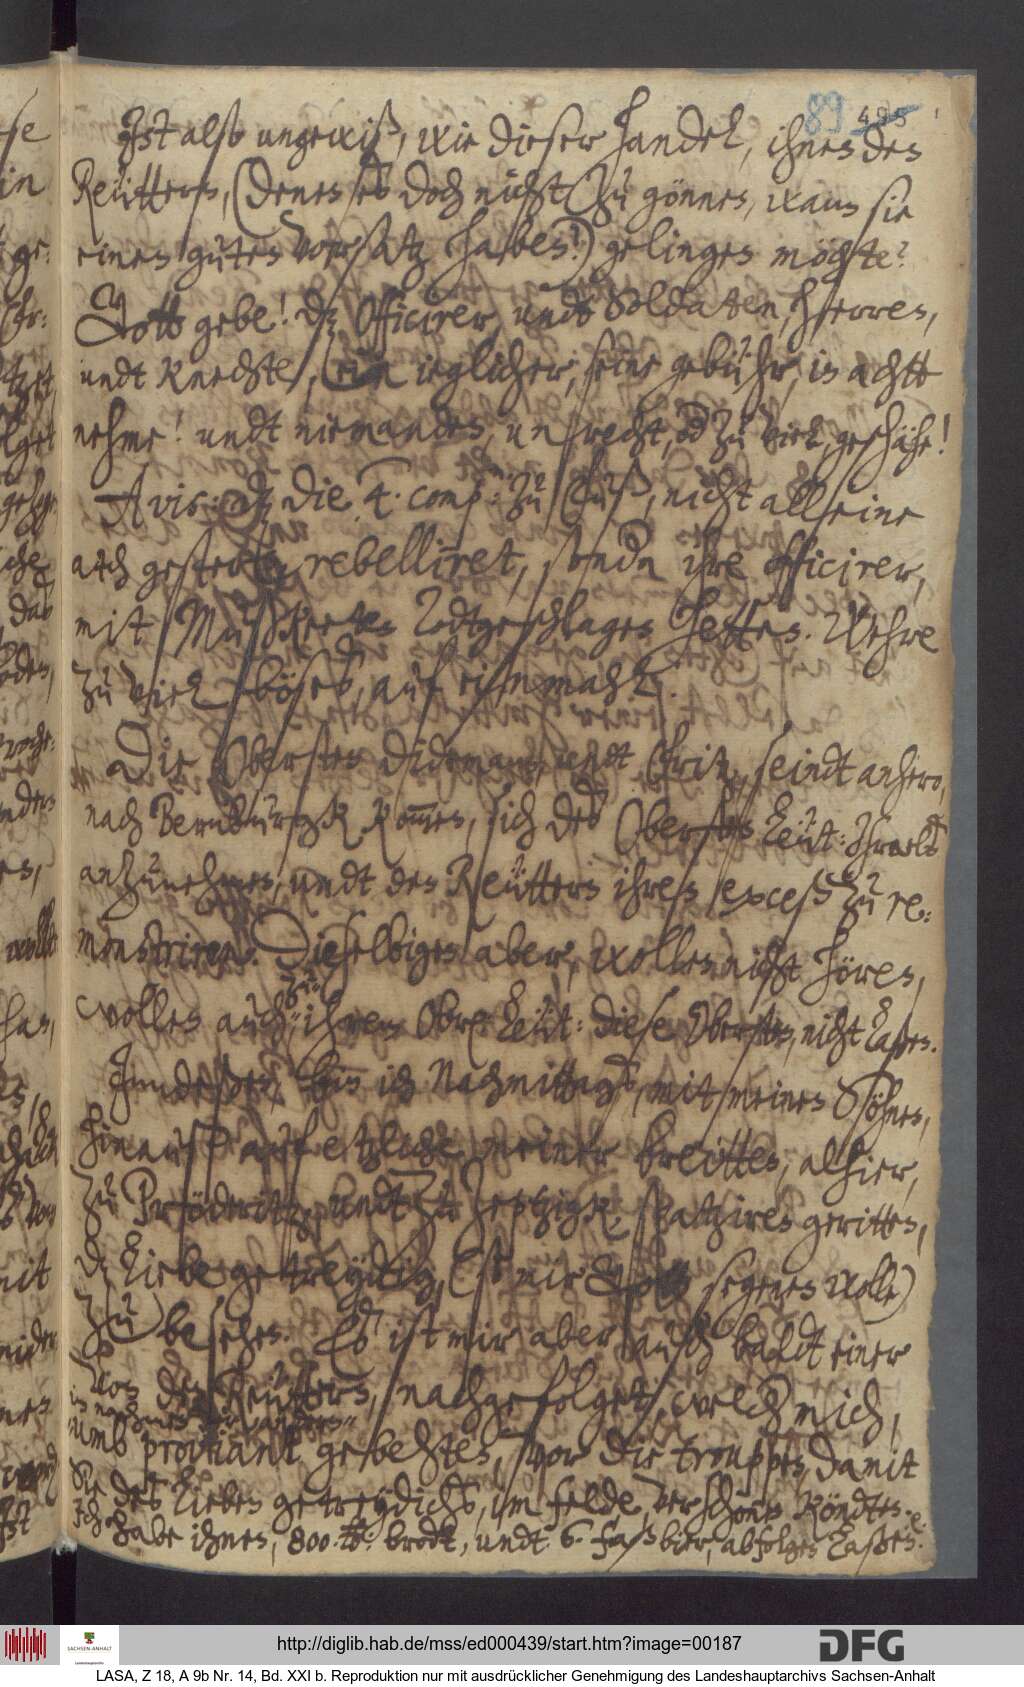 89 495
Ist also ungewiß, wie dieser handel, ihnen den
Reüttern, (denen es doch nicht zu gönnen, wann sie
einen guten vorsatz haben?) gelingen möchte?
Gott gebe! dz Officirer, undt Soldaten, Herren,
undt Knechte, ein ieglicher, seine gebühr, in acht
nehme! undt niemanden, unrecht, od zu viel, geschähe!
Avis: dz die 4. comp: zu Fuß, nicht alleine
auch gestern, rebelliret, sondn ihre officirer,
mit Mußkeeten Todtgeschlagen hetten. Wehre
zu viel böses, auf einmahl.
Die Obersten Didemann, undt Fritz, seindt anhero,
nach Bernburgk kommen, sich des Obersten Leüt: Israels
anzunehmen, undt den Reüttern ihren exceß zu re-
monstriren. Dieselbigen aber, wollen nicht hören,
wollen auch zu ihrem Obr: Leüt: diese Obersten, nicht laßen.
Inndeßen, bin ich Nachmittags, mit meinen Söhnen,
hinauß auf etzliche meiner breitten, alhier,
zu Pröderitz, undt zu Zeptzigk, spatziren geritten,
dz liebe getreydig, (so mir Gott segenen wolle)
zu besehen. Es ist mir aber auch baldt einer
von den Reüttern, nachgefolget, welcher mich,
in nahmen der andern
umb proviant gebehten, vor die trouppen, damit
Sie des lieben getreydichs, im felde, verschonen köndten.
Ich habe ihnen, 800 lb: brodt, undt 6. faß bier, abfolgen laßen.
http://diglib.hab.de/mss/ed000439/start.htm?image=00187
SACHSEN-ANHALT
DFG
LASA, Z 18, A 9b Nr. 14, Bd. XXI b. Reproduktion nur mit ausdrücklicher Genehmigung des Landeshauptarchivs Sachsen-Anhalt